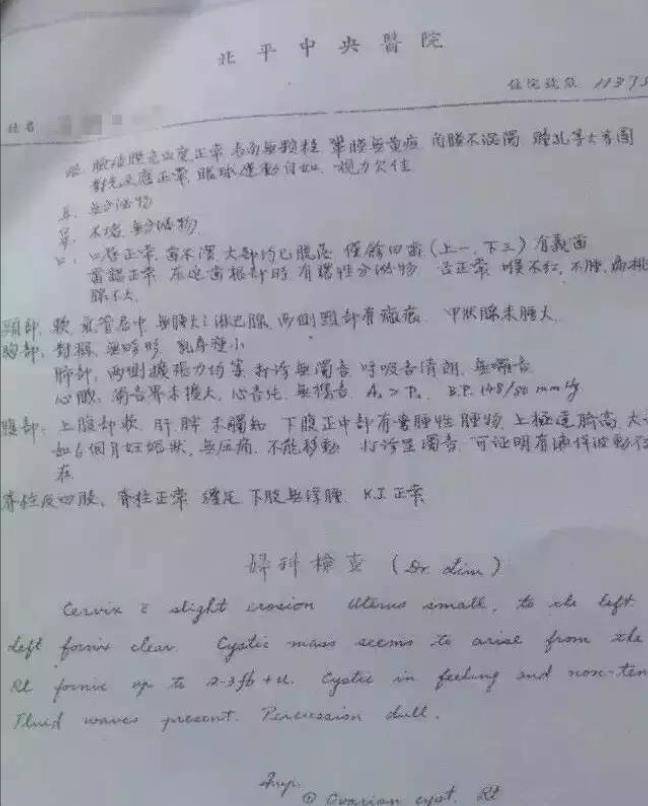 北平中央醫院
住院號數 11375
姓名
眼. 眼結膜充血度正常 表面無顆粒 鞏膜無黃疸 角膜不混濁 瞳孔等大有圓
對光反應正常, 眼球運動自如, 視力欠佳.
耳. 無分泌物
鼻. 不堵, 無分泌物
口. 口唇正常, 齒不潔, 大部均已脫落 僅餘四齒 (上一, 下三) 有義齒
齒齦正常 在近齒根部時有膿性分泌物 舌正常 喉不紅, 不腫, 扁桃
腺不大.
頸部. 軟 氣管居中, 無腫大之淋巴腺, 兩側頸部有瘢痕. 甲狀腺未腫大.
胸部: 對稱, 無畸形 乳房縮小
肺部, 兩側擴張力均等 打診無濁音 呼吸音清朗, 無囉音
心臟, 濁音界未擴大, 心音純, 無雜音 A₂ > P₂ B.P. 148/80 mmHg.
腹部: 上腹部軟, 肝脾未觸知 下腹正中部有囊腫性腫物, 上極達臍高, 大
如6個月妊娠狀, 無压痛, 不能移動 打診呈濁音, 可証明有液体波動存
在
脊柱及四肢, 脊柱正常 纏足 下肢無浮腫 K.J. 正常
婦科檢查 (Dr. Lim)
Cervix c̄ slight erosion Uterus small, to the left.
Left fornix clear. Cystic mass seems to arise from the
Rt fornix up to 2-3fb + u. Cystic in feeling and non-ten
Fluid waves present. Percussion dull.
Imp.
① Ovarian cyst, Rt